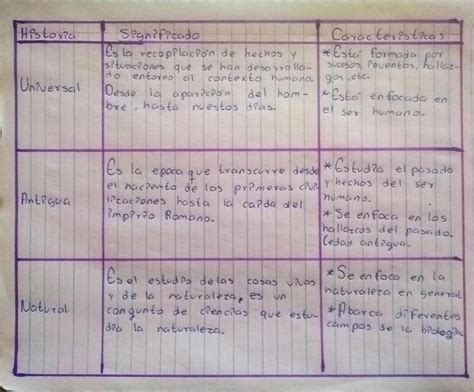 Historia
Significado
Características
Universal
Es la recopilación de hechos y
situaciones que se han desarrolla-
do entorno al contexto humano.
Desde la aparición del hom-
bre, hasta nuestos días.
*Está formada por
sucesos, inventos, hallaz-
gos, etc.
*Está enfocada en
el ser humano.
Antigua
Es la epoca que transcurre desde
el naciento de las primeras civi-
lizaciones hasta la caída del
impirio Romano.
*Estudia el pasado
y hechos del ser
humano.
*Se enfoca en los
hallazcos del pasado.
(edad antigua.
Natural
Es el estudio de las cosas vivas
y de la naturaleza, es un
conjunto de ciencias que estu-
dia la naturaleza.
*Se enfoca en la
naturaleza en general
*Abarca diferentes
campos de la biologia